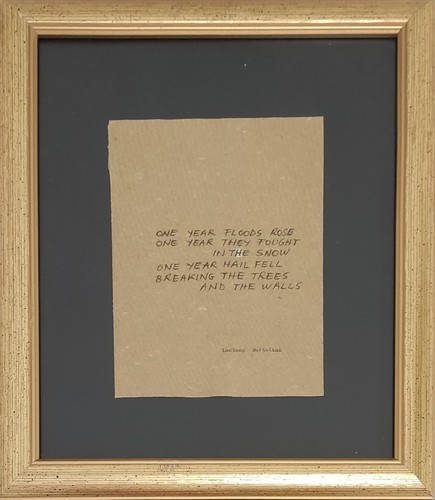 ONE YEAR FLOODS ROSE
ONE YEAR THEY FOUGHT
IN THE SNOW
ONE YEAR HAIL FELL
BREAKING THE TREES
AND THE WALLS